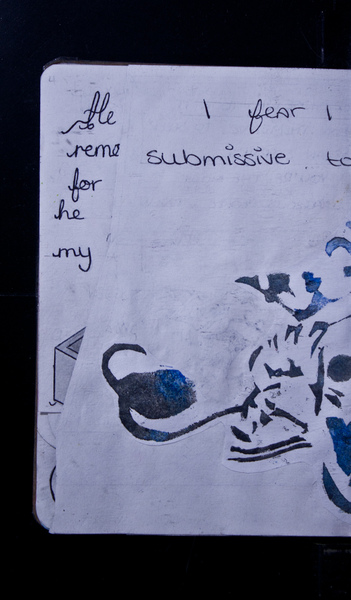 He
reme
for
he
my
I fear I
submissive to